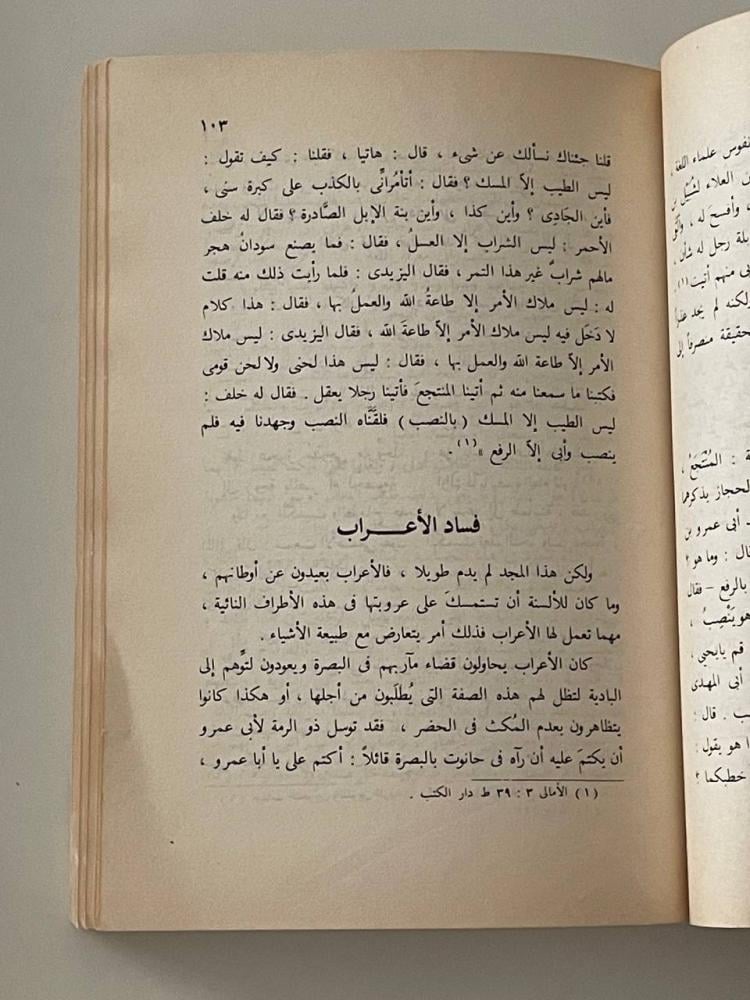 ١٠٣
قلنا جئناك نسألك عن شىء ، قال : هاتيا ، فقلنا : كيف تقول :
ليس الطيب إلاّ المسك ؟ فقال : أتأمرانِّى بالكذب على كبرة سنى ،
فأين الجَادِى ؟ وأين كذا ، وأين بنة الإبل الصَّادرة ؟ فقال له خلف
الأحمر : ليس الشراب إلا العسلُ ، فقال : فما يصنع سودانُ هجر
مالهم شرابٌ غير هذا التمر ، فقال اليزيدى : فلما رأيت ذلك منه قلت
له : ليس ملاك الأمر إلا طاعةُ الله والعملُ بها ، فقال : هذا كلام
لا دَخَل فيه ليس ملاك الأمر إلاّ طاعةَ الله ، فقال اليزيدى : ليس ملاك
الأمر إلاّ طاعة الله والعمل بها ، فقال : ليس هذا لحنى ولا لحن قومى
فكتبنا ما سمعنا منه ثم أتينا المنتجعَ فأتينا رجلا يعقل . فقال له خلف :
ليس الطيب إلا المسك ( بالنصب ) فلقَّنَّاه النصب وجهدنا فيه فلم
ينصب وأبى إلاّ الرفع » (١) .
فساد الأعـــراب
ولكن هذا المجد لم يدم طويلا ، فالأعراب بعيدون عن أوطانهم ،
وما كان للألسنة أن تستمسكَ على عروبتها فى هذه الأطراف النائية ،
مهما تعمل لها الأعراب فذلك أمر يتعارض مع طبيعة الأشياء .
كان الأعراب يحاولون قضاء مآربهم فى البصرة ويعودون لتوِّهم إلى
البادية لتظل لهم هذه الصفة التى يُطلَبون من أجلها ، أو هكذا كانوا
يتظاهرون بعدم المُكث فى الحضر ، فقد توسل ذو الرمة لأبى عمرو
أن يكتمَ عليه أن رآه فى حانوت بالبصرة قائلاً : أكتم على يا أبا عمرو ،
(١) الأمالى ٣ : ٣٩ ط دار الكتب .
نفوس علماء اللغة ،
العلاء لشُبَيْل بن
، وأفسح له ،
رجل له شأن ،
منهم أتيت (١)
ولكنه لم يجد عذراً
منصرفاً إلى
: المُنْتَجَعْ ،
الحجاز يذكرهما
أبى عمرو بن
قال : وما هو ؟
بالرفع – فقال
هو يَنْصِبُ ،
قم يا يحيى ،
أبى المهدى
. قال :
هو يقول :
خطبكما ؟